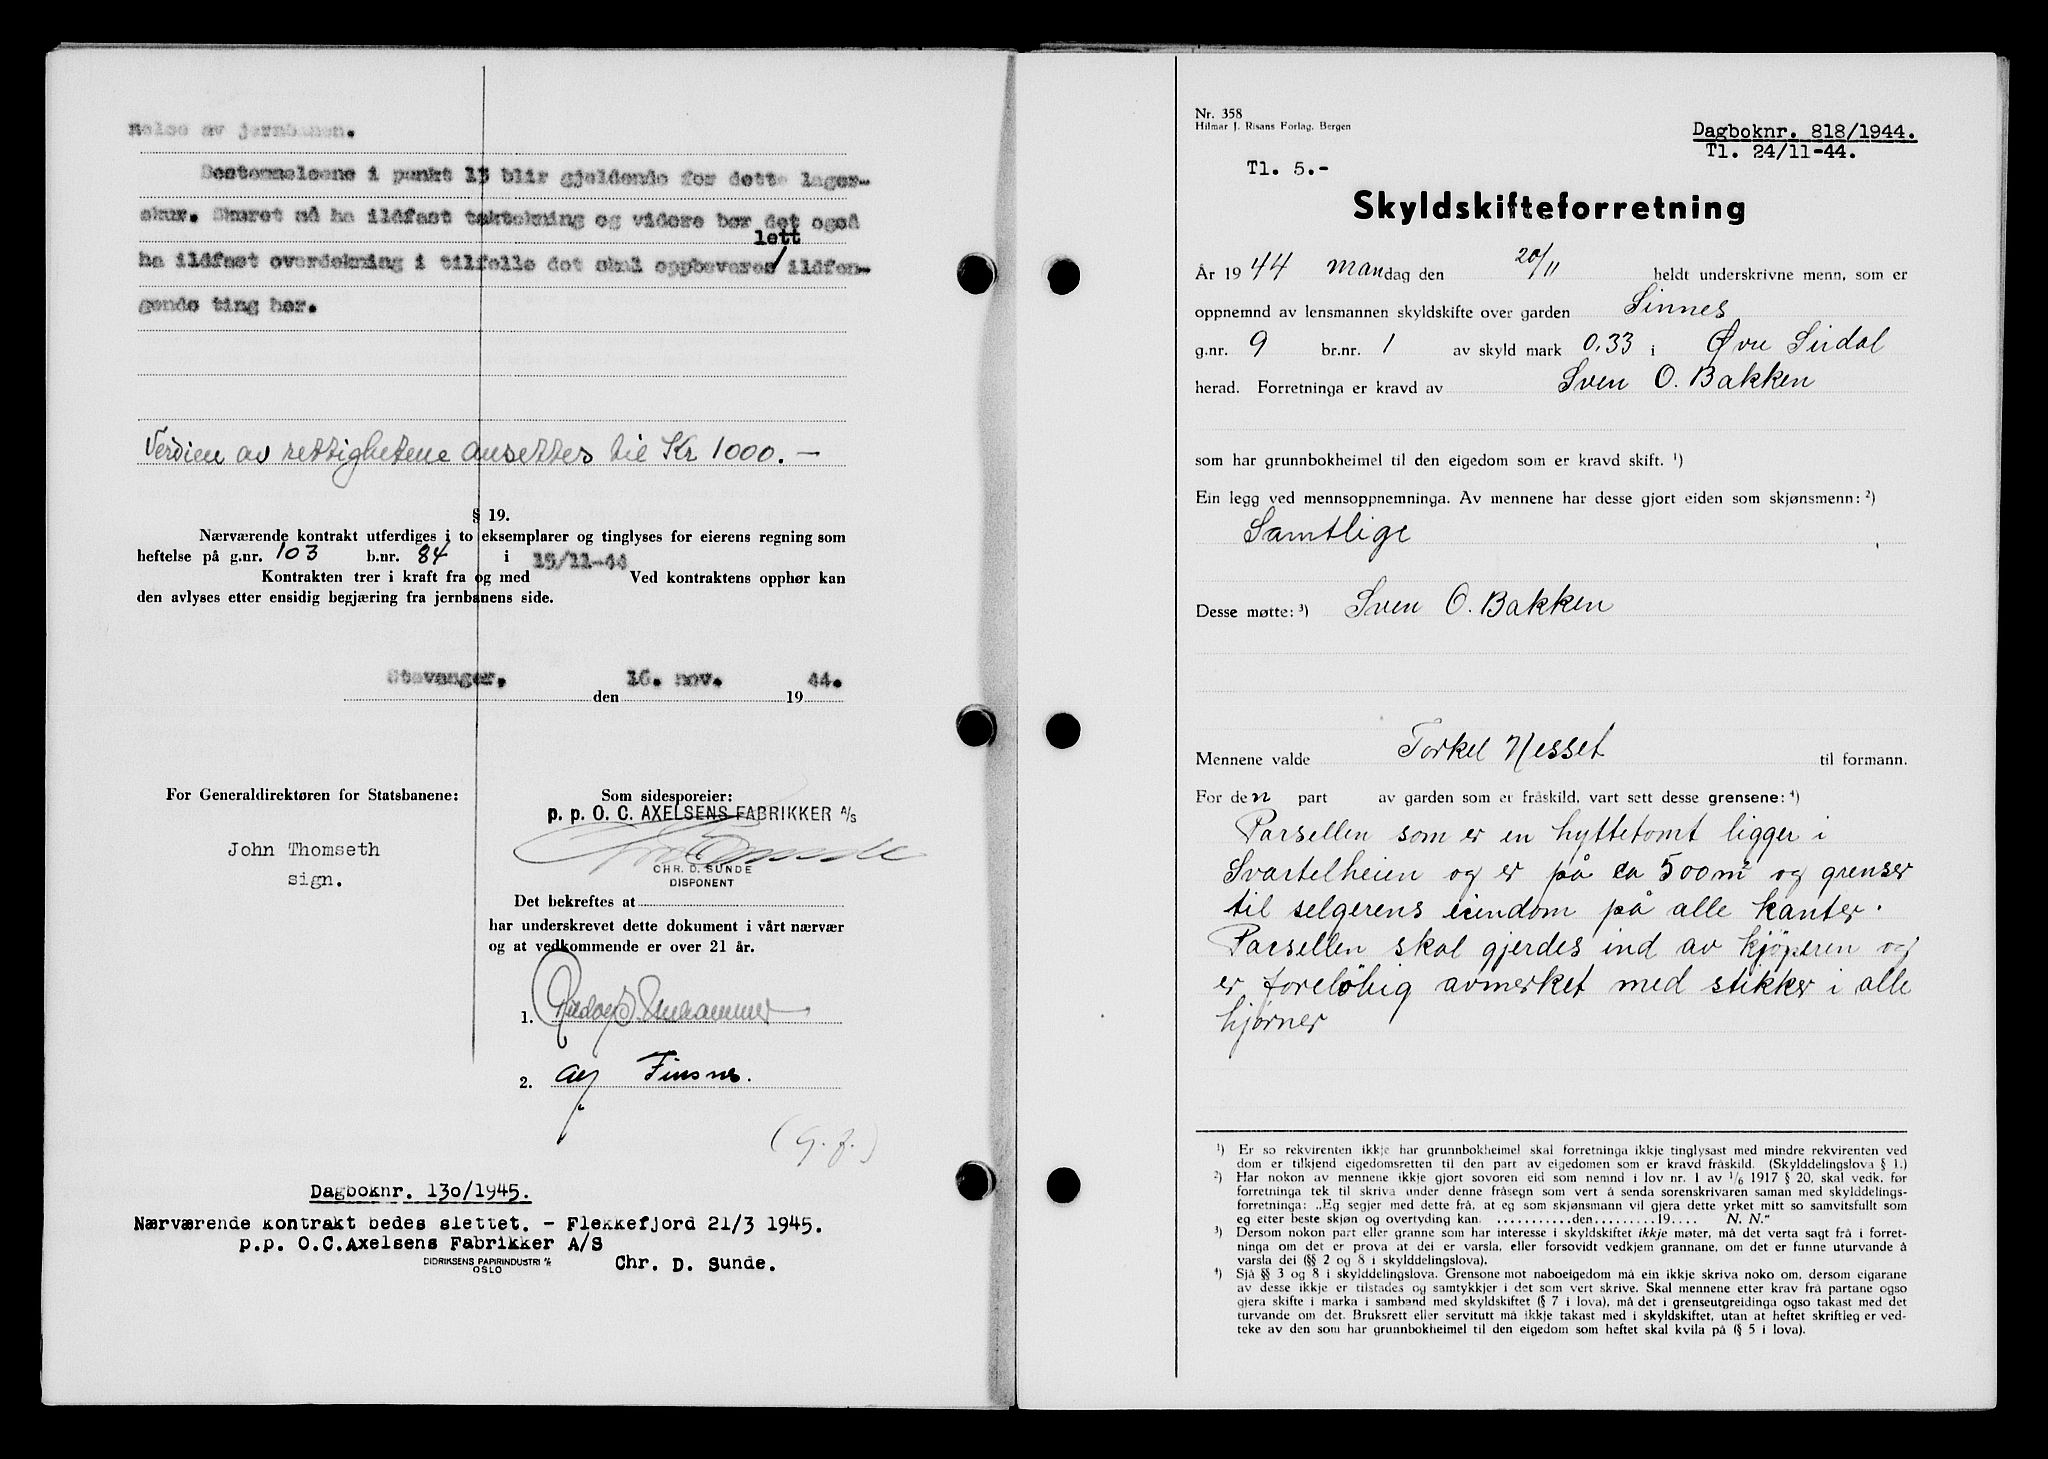 nelse av jernbanen.
Bestemmelsene i punkt 15 blir gjeldende for dette lager-
skur. Skuret må ha ildfast taktekning og videre bør det også
lett
ha ildfast overdekning i tilfelle det skal oppbevares / ildfen-
gende ting her.
Verdien av rettighetene ansettes til Kr 1000. —
§ 19.
Nærværende kontrakt utferdiges i to eksemplarer og tinglyses for eierens regning som
heftelse på g.nr. 103 b.nr. 84 i
Kontrakten trer i kraft fra og med 15/11-44 Ved kontraktens opphør kan
den avlyses etter ensidig begjæring fra jernbanens side.
Stavanger, den 16. nov. 19 44.
For Generaldirektøren for Statsbanene:
John Thomseth
sign.
Som sidesporeier:
p. p. O. C. AXELSENS FABRIKKER A/S
CHR. D. SUNDE
DISPONENT
Det bekreftes at
har underskrevet dette dokument i vårt nærvær
og at vedkommende er over 21 år.
1.
2. Alf Finsnes.
(G. f.)
Dagboknr. 130/1945.
Nærværende kontrakt bedes slettet. - Flekkefjord 21/3 1945.
p.p. O.C.Axelsens Fabrikker A/S
DIDRIKSENS PAPIRINDUSTRI A/S
OSLO
Chr. D. Sunde.
Nr. 358
Hilmar J. Risans Forlag, Bergen
Dagboknr. 818/1944.
Tl. 24/11-44.
Tl. 5.-
Skyldskifteforretning
År 1944 mandag den 20/11 heldt underskrivne menn, som er
oppnemnd av lensmannen skyldskifte over garden Sinnes
g.nr. 9 br.nr. 1 av skyld mark 0,33 i Øvre Sirdal
herad. Forretninga er kravd av Sven O. Bakken
som har grunnbokheimel til den eigedom som er kravd skift. ¹)
Ein legg ved mennsoppnemninga. Av mennene har desse gjort eiden som skjønsmenn: ²)
Samtlige
Desse møtte: ³) Sven O. Bakken
Mennene valde Torkel Nesset til formann.
For den part av garden som er fråskild, vart sett desse grensene: ⁴)
Parsellen som er en hyttetomt ligger i
Svartelheien og er på ca 500 m² og grenser
til selgerens eiendom på alle kanter.
Parsellen skal gjerdes ind av kjøperen og
er foreløbig avmerket med stikker i alle
hjørner
¹) Er so rekvirenten ikkje har grunnbokheimel skal forretninga ikkje tinglysast med mindre rekvirenten ved
dom er tilkjend eigedomsretten til den part av eigedomen som er kravd fråskild. (Skylddelingslova § 1.)
²) Har nokon av mennene ikkje gjort sovoren eid som nemnd i lov nr. 1 av 1/6 1917 § 20, skal vedk. før
forretninga tek til skriva under denne fråsegn som vert å senda sorenskrivaren saman med skylddelings-
forretninga: „Eg segjer med dette frå, at eg som skjønsmann vil gjera dette yrket mitt so samvitsfullt som
eg etter beste skjøn og overtyding kan. ...........den.........19.... N. N."
³) Dersom nokon part eller granne som har interesse i skyldskiftet ikkje møter, må det verta sagt frå i forret-
ninga om det er prova at dei er varsla, eller forsovidt vedkjem grannane, om det er funne uturvande å
varsla dei (§§ 2 og 8 i skylddelingslova).
⁴) Sjå §§ 3 og 8 i skylddelingslova. Grensone mot naboeigedom må ein ikkje skriva noko om, dersom eigarane
av desse ikkje er tilstades og samtykkjer i det som vert skrive. Skal mennene etter krav frå partane ogso
gjera skifte i marka i samband med skyldskiftet (§ 7 i lova), må det i grenseutgreidinga ogso takast med det
turvande om det. Bruksrett eller servitutt må ikkje takast med i skyldskiftet, utan at heftet skriftleg er ved-
teke av den som har grunnbokheimel til den eigedom som heftet skal kvila på (§ 5 i lova).